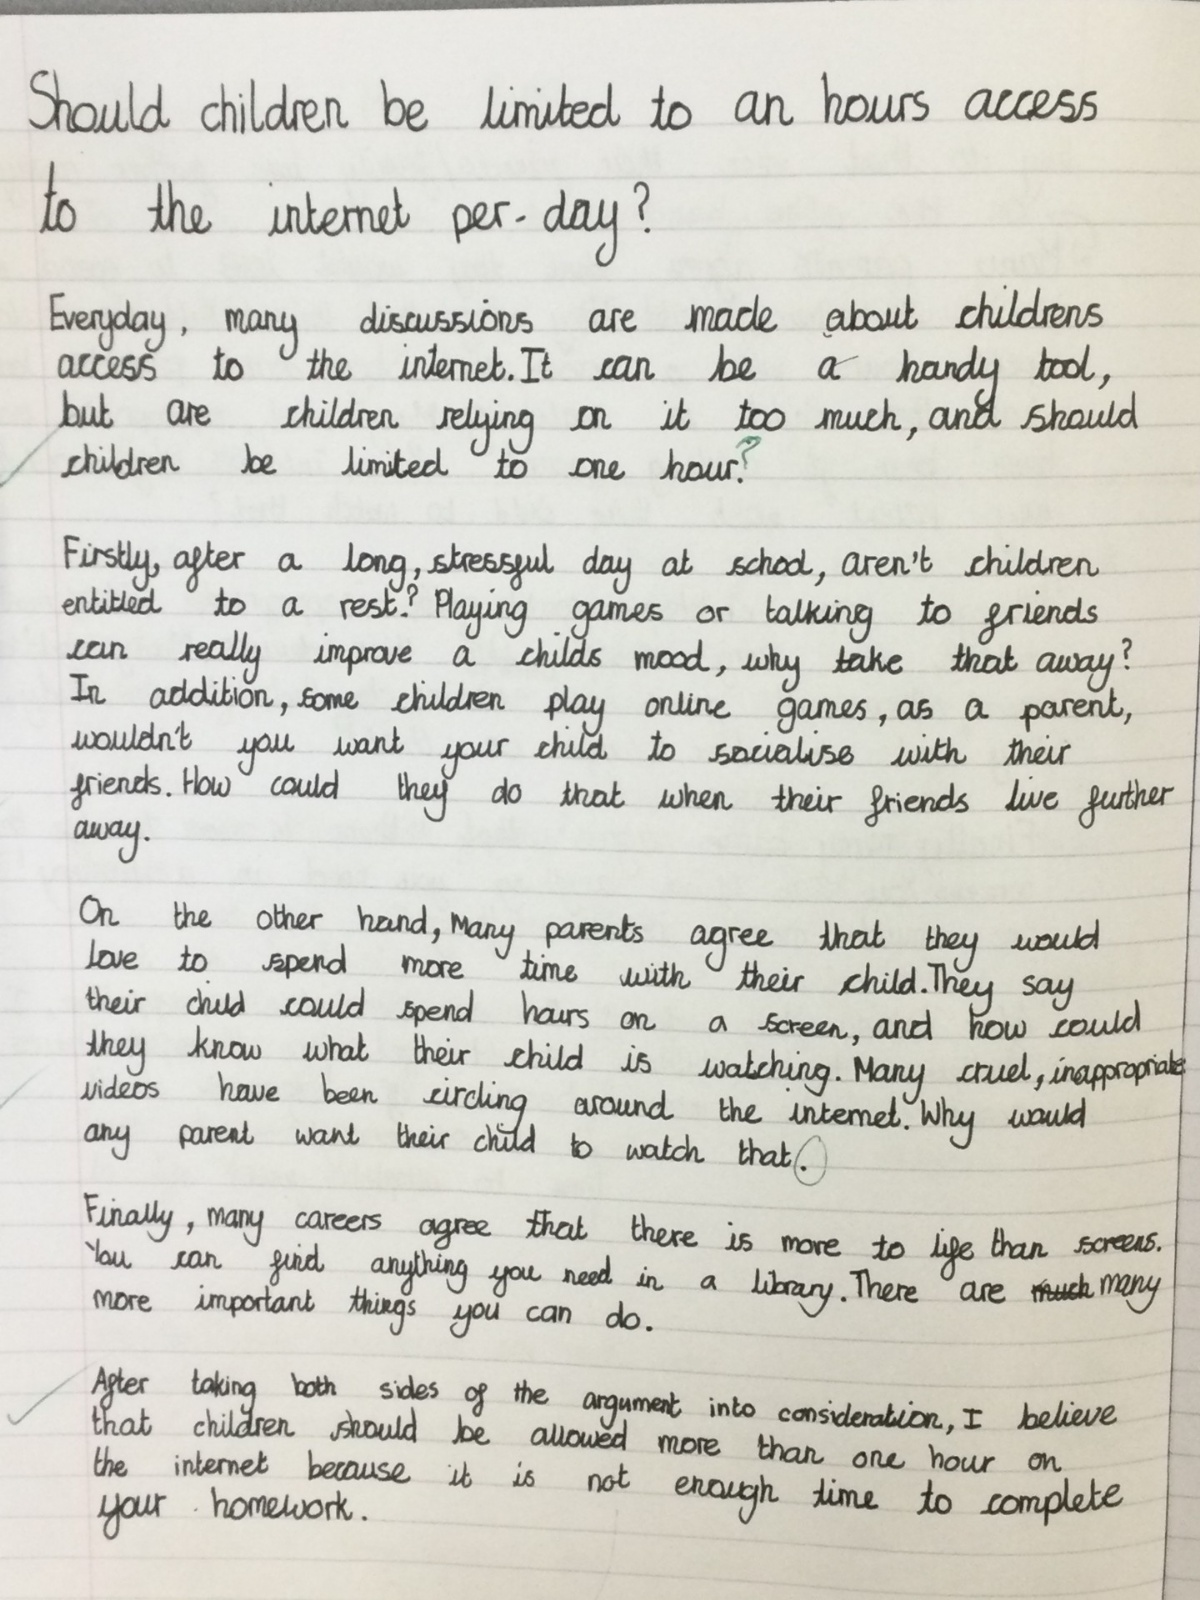 Should children be limited to an hours access
to the internet per-day?
Everyday, many discussions are made about childrens
access to the internet. It can be a handy tool,
but are children relying on it too much, and should
children be limited to one hour?
Firstly, after a long, stressful day at school, aren't children
entitled to a rest? Playing games or talking to friends
can really improve a childs mood, why take that away?
In addition, some children play online games, as a parent,
wouldn't you want your child to socialise with their
friends. How could they do that when their friends live further
away.
On the other hand, Many parents agree that they would
love to spend more time with their child. They say
their child could spend hours on a screen, and how could
they know what their child is watching. Many cruel, inappropriate
videos have been circling around the internet. Why would
any parent want their child to watch that.
Finally, many careers agree that there is more to life than screens.
You can find anything you need in a library. There are much many
more important things you can do.
After taking both sides of the argument into consideration, I believe
that children should be allowed more than one hour on
the internet because it is not enough time to complete
your homework.